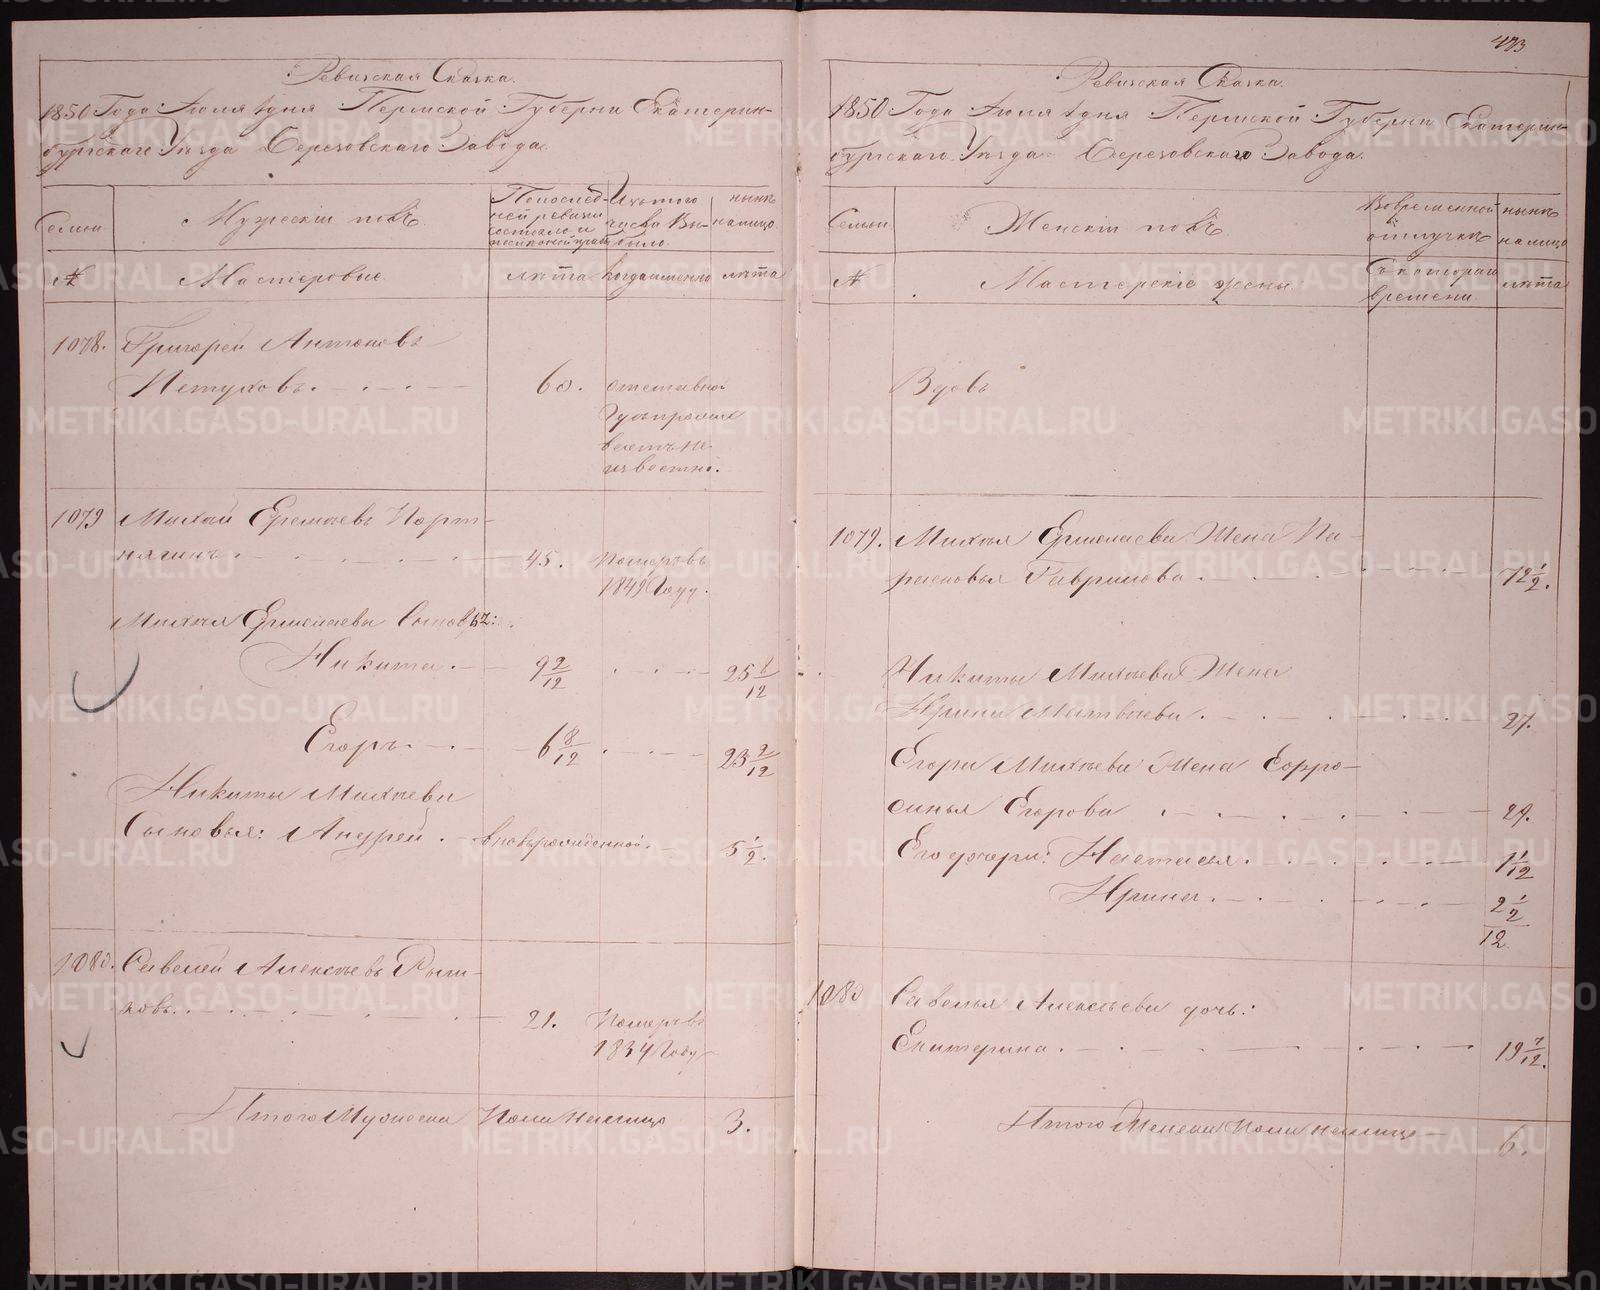 483
Ревизская Сказка.
1850 Года Июля 1 дня Пермской Губерни Екатерин-
бургскаго Уезда Березовскаго Завода.
Семьи
Мужескій полъ.
Попослед-
ней ревизіи
состояло и
Изъ того
числа Вы-
было.
ныне
налицо
№
Мастеровые.
лета
когда именно
лета
1078. Григорей Антоновъ
Петуховъ. 60. отставной
где проживаетъ не-
известно.
1079 Михай Ермолаевъ Порт-
нягинъ. 45. Померъ въ
1849 Году.
Михея Ермолаева Сыновья:
Никита. 9 2/12 25 1/12
Егоръ. 6 8/12 23 2/12
Никиты Михеева
Сыновья: Андрей. вновьрожденной. 5 1/2.
1080. Савелей Алексеевъ Рыш-
ковъ. 21. Померъ въ
1834 Году
Итого Мужеска Пола налицо 3.
Ревизская Сказка.
1850 Года Июля 1 дня Пермской Губерни Екатерин-
бургскаго Уезда Березовскаго Завода.
Семьи
Женскій полъ.
Вовременной
отлучке
ныне
налицо
№
Мастерскіе жены
Съ котораго
времени
лета
Вдовъ
1079. Михея Ермолаева Жена Па-
расковья Гаврилова. 72 1/2.
Никиты Михеева Жена
Ирина Матвеева. 27.
Егора Михеева Жена Ефро-
синья Егорова 29.
Его дочери: Настасья. 1 1/12
Ирина. 2 1/2
12
1080 Савелья Алексеева дочь:
Екатерина. 19 7/12.
Итого Женска Пола налицо 6.
METRIKI.GASO-URAL.RU